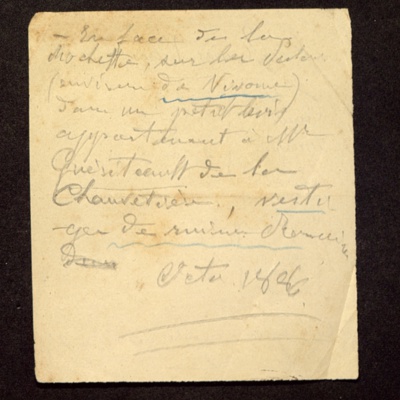 - En face de la
Rochette, sur les
(environ de Vivonne)
dans un petit bois
appartenant à Mr
de la
Chauvetière, vesti-
-ges de ruines Romaines
Octo.